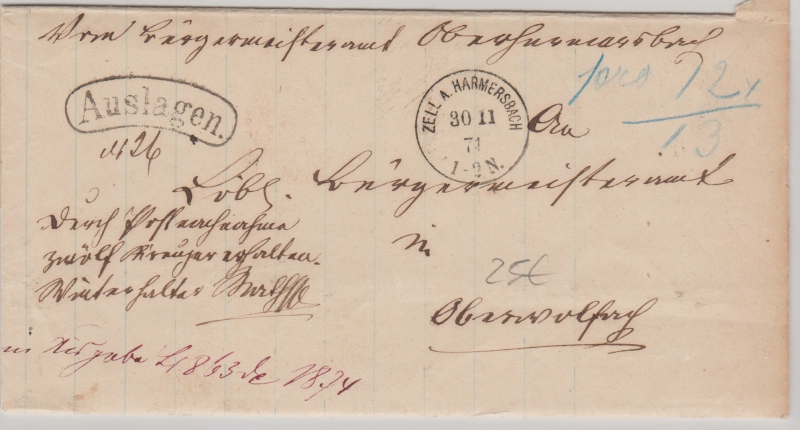 Vom Bürgermeisteramt Oberharmersbach
Auslagen.
№ 26
ZELL A. HARMERSBACH
30 11
74
1-2 N.
pro 12x
13
An
Löbl. Bürgermeisteramt
in
Oberwolfach
durch Postnachnahme
zwölf Kreuzer erhalten.
Winterhalter
25€
in Ausgabe 1874